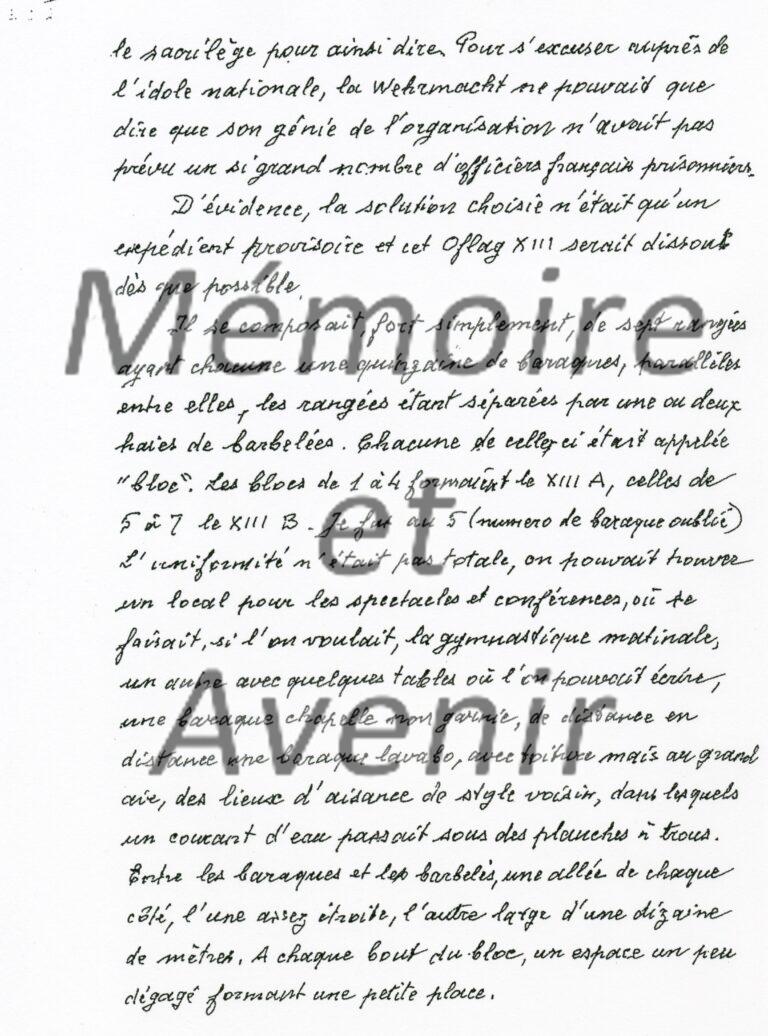 le sacrilège pour ainsi dire. Pour s'excuser auprès de
l'idole nationale, la Wehrmacht ne pouvait que
dire que son génie de l'organisation n'avait pas
prévu un si grand nombre d'officiers français prisonniers.
D'évidence, la solution choisie n'était qu'un
expédient provisoire et cet Oflag XIII serait dissout
dès que possible.
Mémoire
Il se composait, fort simplement, de sept rangées
ayant chacune une quinzaine de baraques, parallèles
entre elles, les rangées étant séparées par une ou deux
haies de barbelées. Chacune de celles ci était appelée
"bloc". Les blocs de 1 à 4 formaient le XIII A, celles de
et
5 à 7 le XIII B. Je fus au 5 (numero de baraque oublié)
L'uniformité n'était pas totale, on pouvait trouver
un local pour les spectacles et conférences, où se
faisait, si l'on voulait, la gymnastique matinale,
un autre avec quelques tables où l'on pouvait écrire,
Avenir
une baraque chapelle non garnie, de distance en
distance une baraque lavabo, avec toiture mais au grand
air, des lieux d'aisance de style voisin, dans lesquels
un courant d'eau passait sous des planches à trous.
Entre les baraques et les barbelés, une allée de chaque
côté, l'une assez étroite, l'autre large d'une dizaine
de mètres. A chaque bout du bloc, un espace un peu
dégagé formant une petite place.